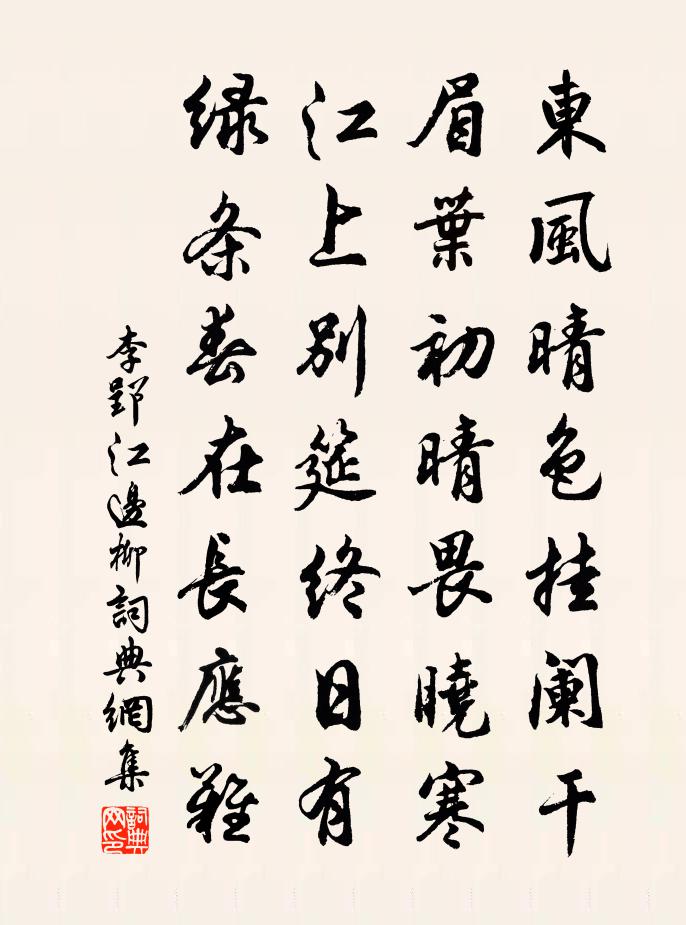 東風晴色挂阑干
眉葉初晴畏曉寒
江上別筵終日有
绿条春在長應難
李郢江邊柳詞典網集
詞典网印